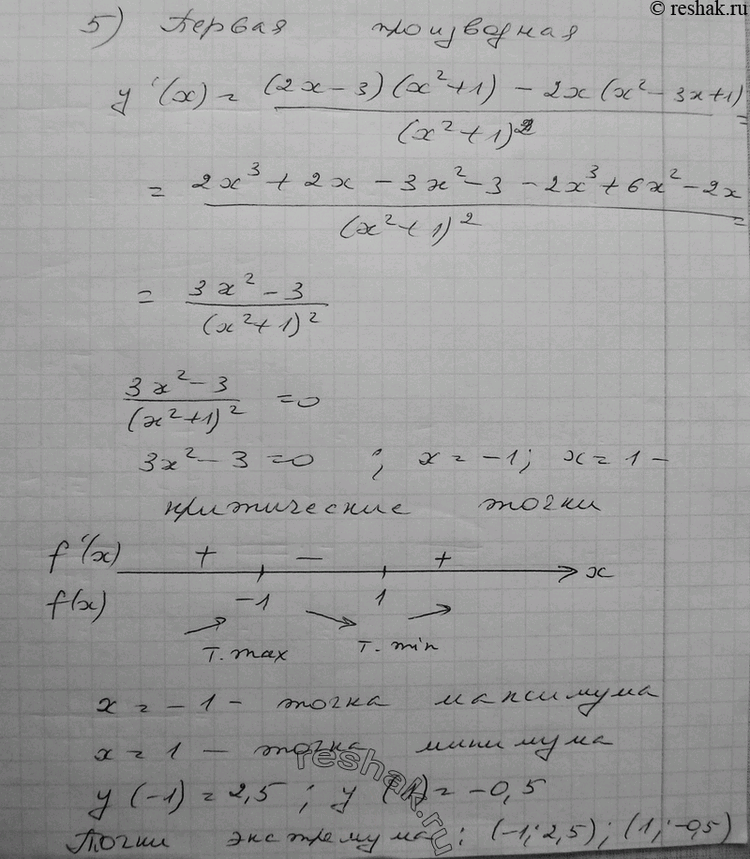 © reshak.ru
5) Первая производная
y'(x) = ((2x-3)(x²+1) - 2x(x²-3x+1))/(x²+1)² =
= (2x³+2x-3x²-3-2x³+6x²-2x)/(x²+1)² =
= (3x²-3)/(x²+1)²
(3x²-3)/(x²+1)² = 0
3x²-3=0 ; x=-1; x=1 -
критические точки
f'(x) + - + x
f(x) -1 1
т. max т. min
x = -1 - точка максимума
x = 1 - точка минимума
y(-1) = 2,5 ; y(1) = -0,5
Точки экстремума: (-1; 2,5); (1; -0,5)
reshak.ru